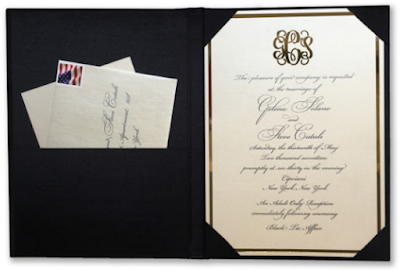 The pleasure of your company is requested
at the marriage of
and
Steve
Saturday, the thirteenth of May
Two thousand seventeen
promptly at six thirty in the evening
Cipriani
New York, New York
An Adult Only Reception
immediately following ceremony
Black Tie Affair